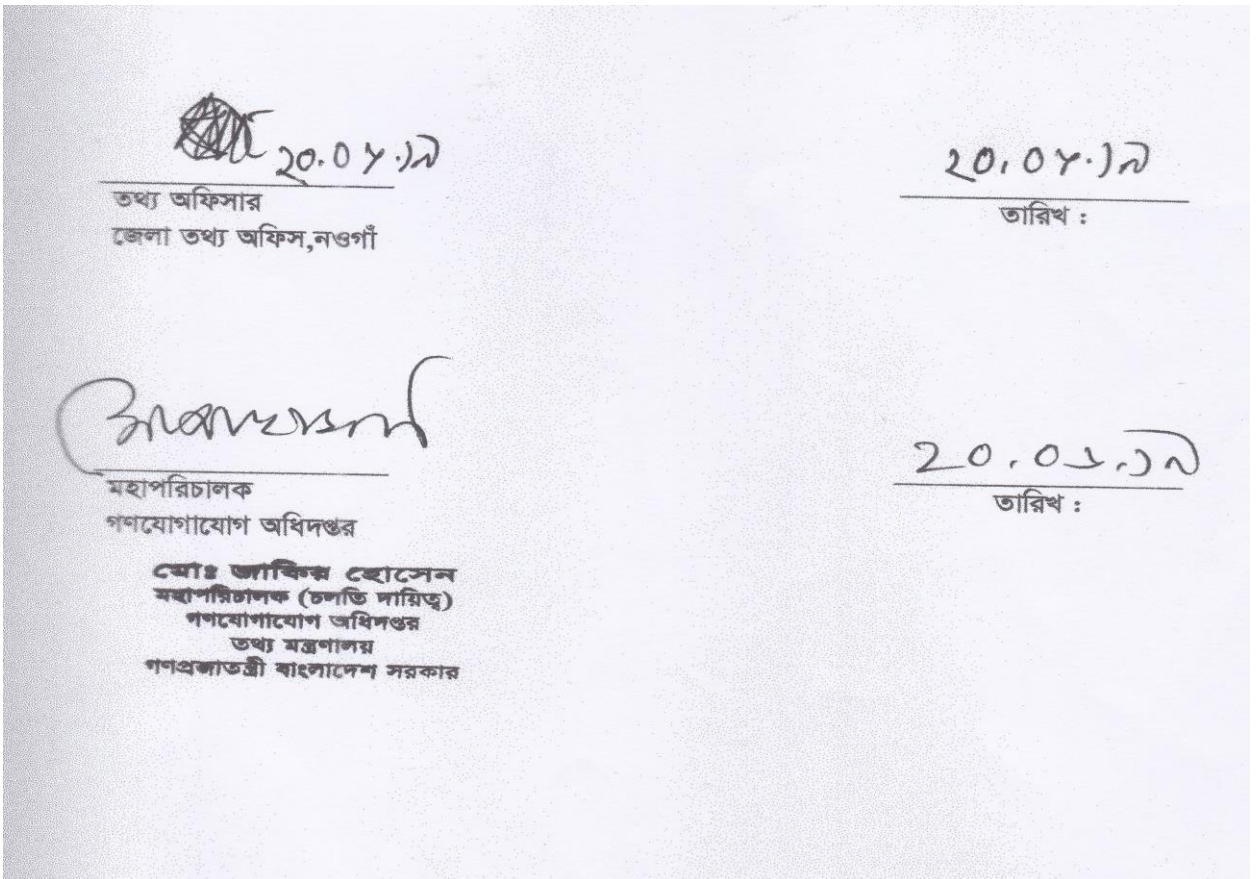 ২০.০৬.১৯
২০.০৬.১৯
তথ্য অফিসার
তারিখ :
জেলা তথ্য অফিস,নওগাঁ
২০.০৬.১৯
মহাপরিচালক
তারিখ :
গণযোগাযোগ অধিদপ্তর
মোঃ জাকির হোসেন
মহাপরিচালক (চলতি দায়িত্ব)
গণযোগাযোগ অধিদপ্তর
তথ্য মন্ত্রণালয়
গণপ্রজাতন্ত্রী বাংলাদেশ সরকার